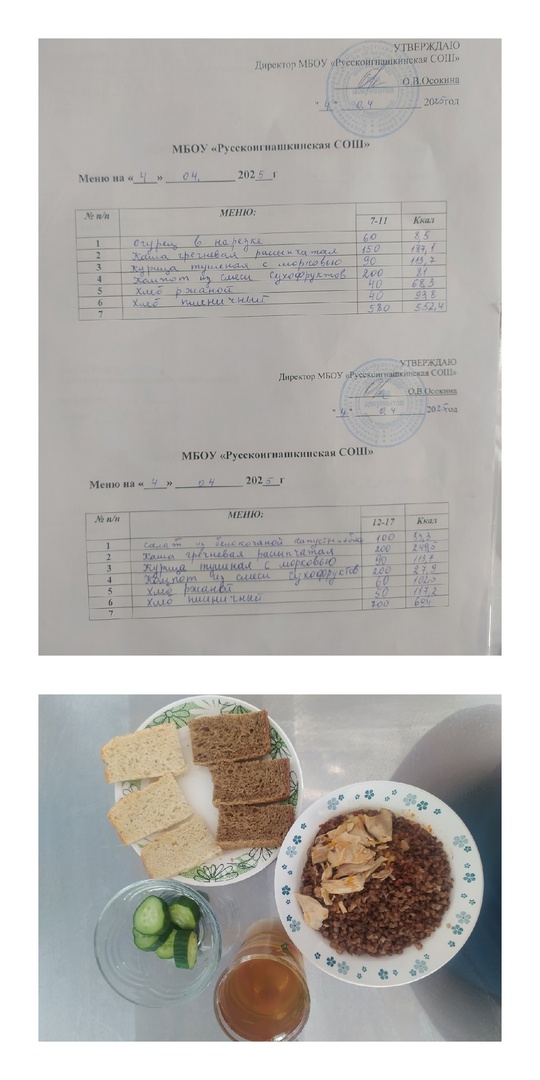 УТВЕРЖДАЮ
Директор МБОУ «Русскоигнашкинская СОШ»
О.В.Осокина
"4" 04 2025год
МБОУ «Русскоигнашкинская СОШ»
Меню на «4» 04. 2025г
№ п/п МЕНЮ: 7-11 Ккал
1 Огурец в нарезке 60 8,5
2 Каша гречневая рассыпчатая 150 187,1
3 Курица тушеная с морковью 90 113,7
4 Компот из смеси сухофруктов 200 81
5 Хлеб ржаной 40 68,3
6 Хлеб пшеничный 40 93,8
7 580 552,4
УТВЕРЖДАЮ
Директор МБОУ «Русскоигнашкинская СОШ»
О.В.Осокина
"4" 04 2025год
МБОУ «Русскоигнашкинская СОШ»
Меню на «4» 04 2025г
№ п/п МЕНЮ: 12-17 Ккал
1 Салат из белокочаной капусты 100
2 Каша гречневая рассыпчатая 200
3 Курица тушеная с морковью 90
4 Компот из смеси сухофруктов 200
5 Хлеб ржаной 60
6 Хлеб пшеничный 50 117,2
7 700